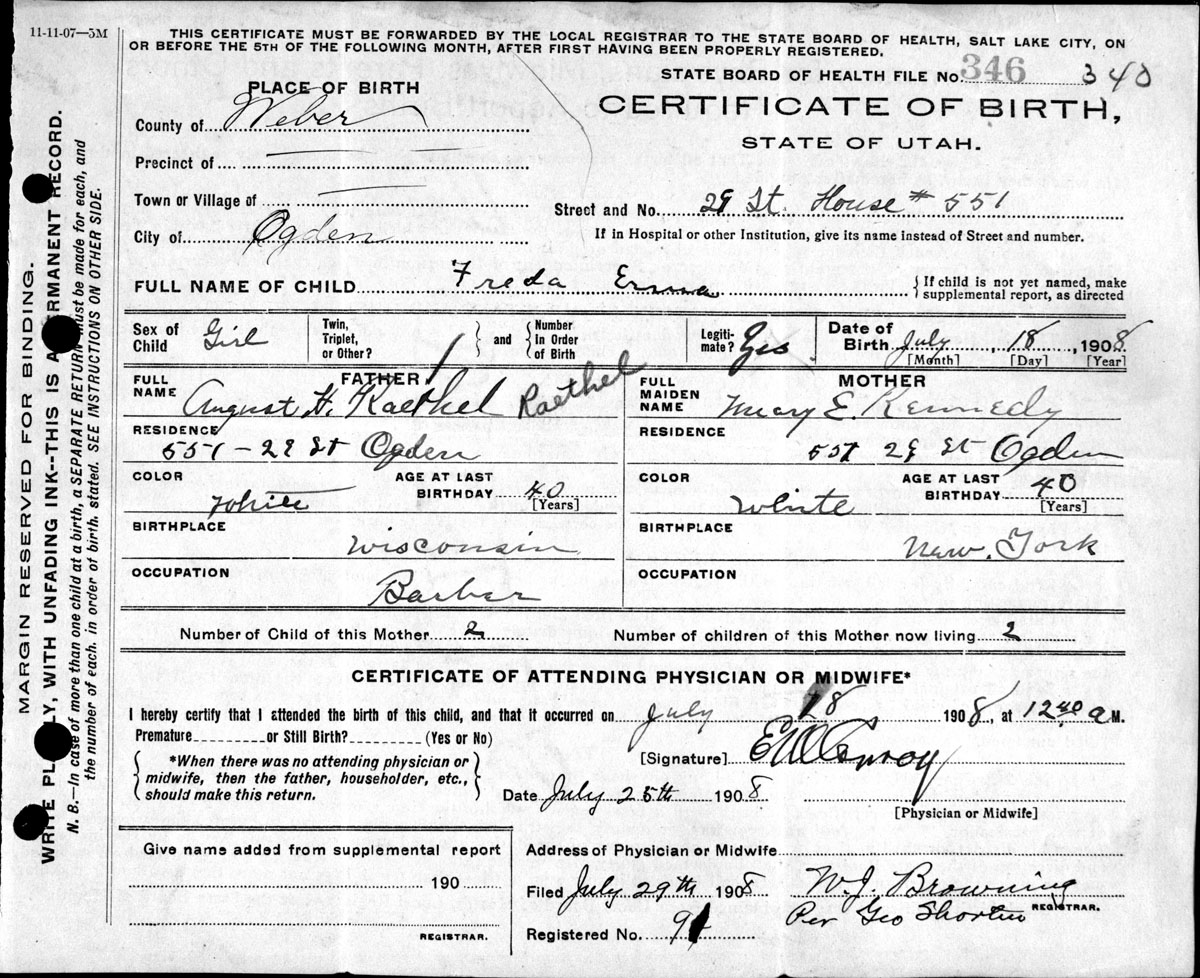 11-11-07—5M
THIS CERTIFICATE MUST BE FORWARDED BY THE LOCAL REGISTRAR TO THE STATE BOARD OF HEALTH, SALT LAKE CITY, ON
OR BEFORE THE 5TH OF THE FOLLOWING MONTH, AFTER FIRST HAVING BEEN PROPERLY REGISTERED.
STATE BOARD OF HEALTH FILE No. 346 340
PLACE OF BIRTH
CERTIFICATE OF BIRTH,
STATE OF UTAH.
County of Weber
Precinct of
Town or Village of
Street and No. 29 St. House # 551
City of Ogden
If in Hospital or other Institution, give its name instead of Street and number.
FULL NAME OF CHILD Freda Erma
{If child is not yet named, make
supplemental report, as directed
Sex of Child Girl
Twin, Triplet, or Other?
and
Number In Order of Birth
Legiti-mate? Yes
Date of Birth July, 18, 1908
[Month] [Day] [Year]
FATHER
FULL NAME August H. Raethel Raethel
RESIDENCE 551 - 29 St Ogden
COLOR White
AGE AT LAST BIRTHDAY 40
[Years]
BIRTHPLACE Wisconsin
OCCUPATION Barber
MOTHER
FULL MAIDEN NAME Mary E. Kennedy
RESIDENCE 551 29 St Ogden
COLOR White
AGE AT LAST BIRTHDAY 40
[Years]
BIRTHPLACE New. York
OCCUPATION
Number of Child of this Mother 2
Number of children of this Mother now living 2
CERTIFICATE OF ATTENDING PHYSICIAN OR MIDWIFE*
I hereby certify that I attended the birth of this child, and that it occurred on July 18 1908, at 12 40 a M.
Premature or Still Birth? (Yes or No)
[Signature]
*When there was no attending physician or
midwife, then the father, householder, etc.,
should make this return.
Date July 25th 1908
[Physician or Midwife]
Give name added from supplemental report
190
REGISTRAR.
Address of Physician or Midwife
Filed July 29th 1908 W. J. Browning
Per Geo REGISTRAR.
Registered No.
MARGIN RESERVED FOR BINDING.
WRITE PLAINLY, WITH UNFADING INK--THIS IS A PERMANENT RECORD.
N. B.—In case of more than one child at a birth, a SEPARATE RETURN must be made for each, and
the number of each, in order of birth, stated. SEE INSTRUCTIONS ON OTHER SIDE.